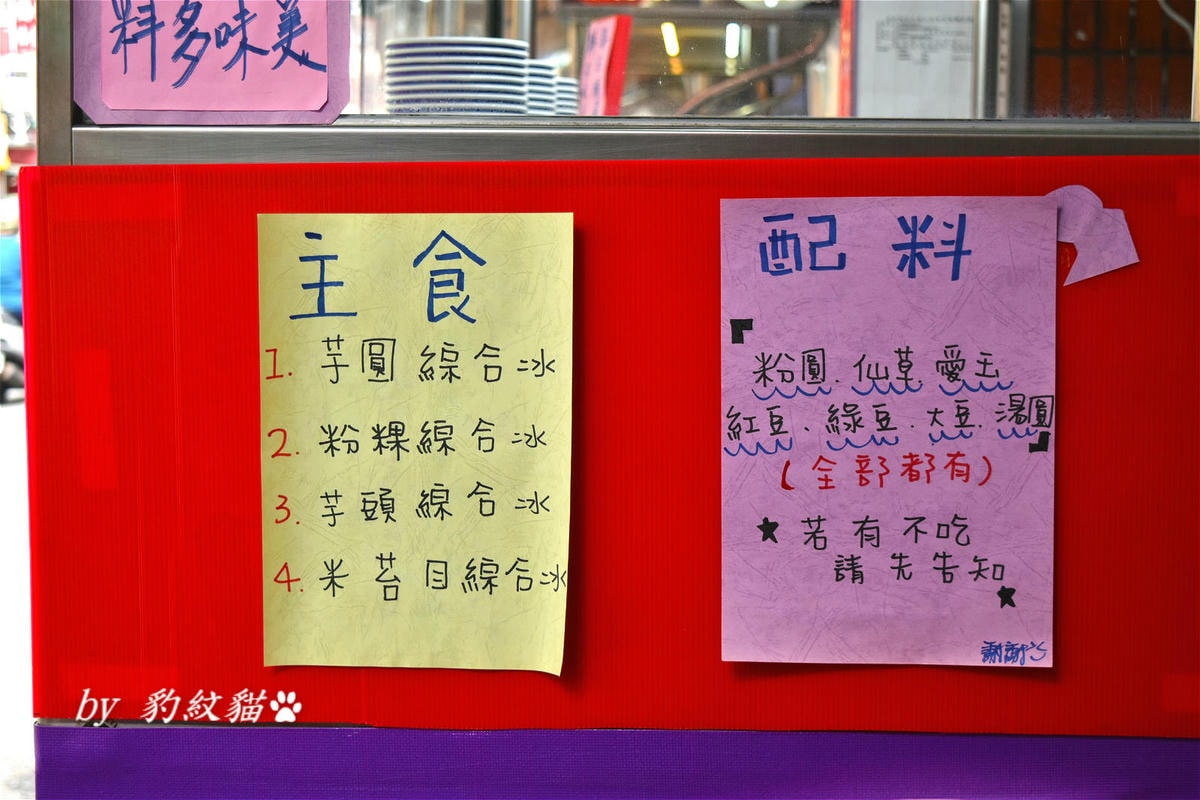 料多味美
主食
1. 芋圓綜合冰
2. 粉粿綜合冰
3. 芋頭綜合冰
4. 米苔目綜合冰
配料
『
粉圓．仙草．愛玉
紅豆．綠豆．大豆．湯圓
』
(全部都有)
★ 若有不吃
請先告知 ★
謝謝
by 豹紋貓